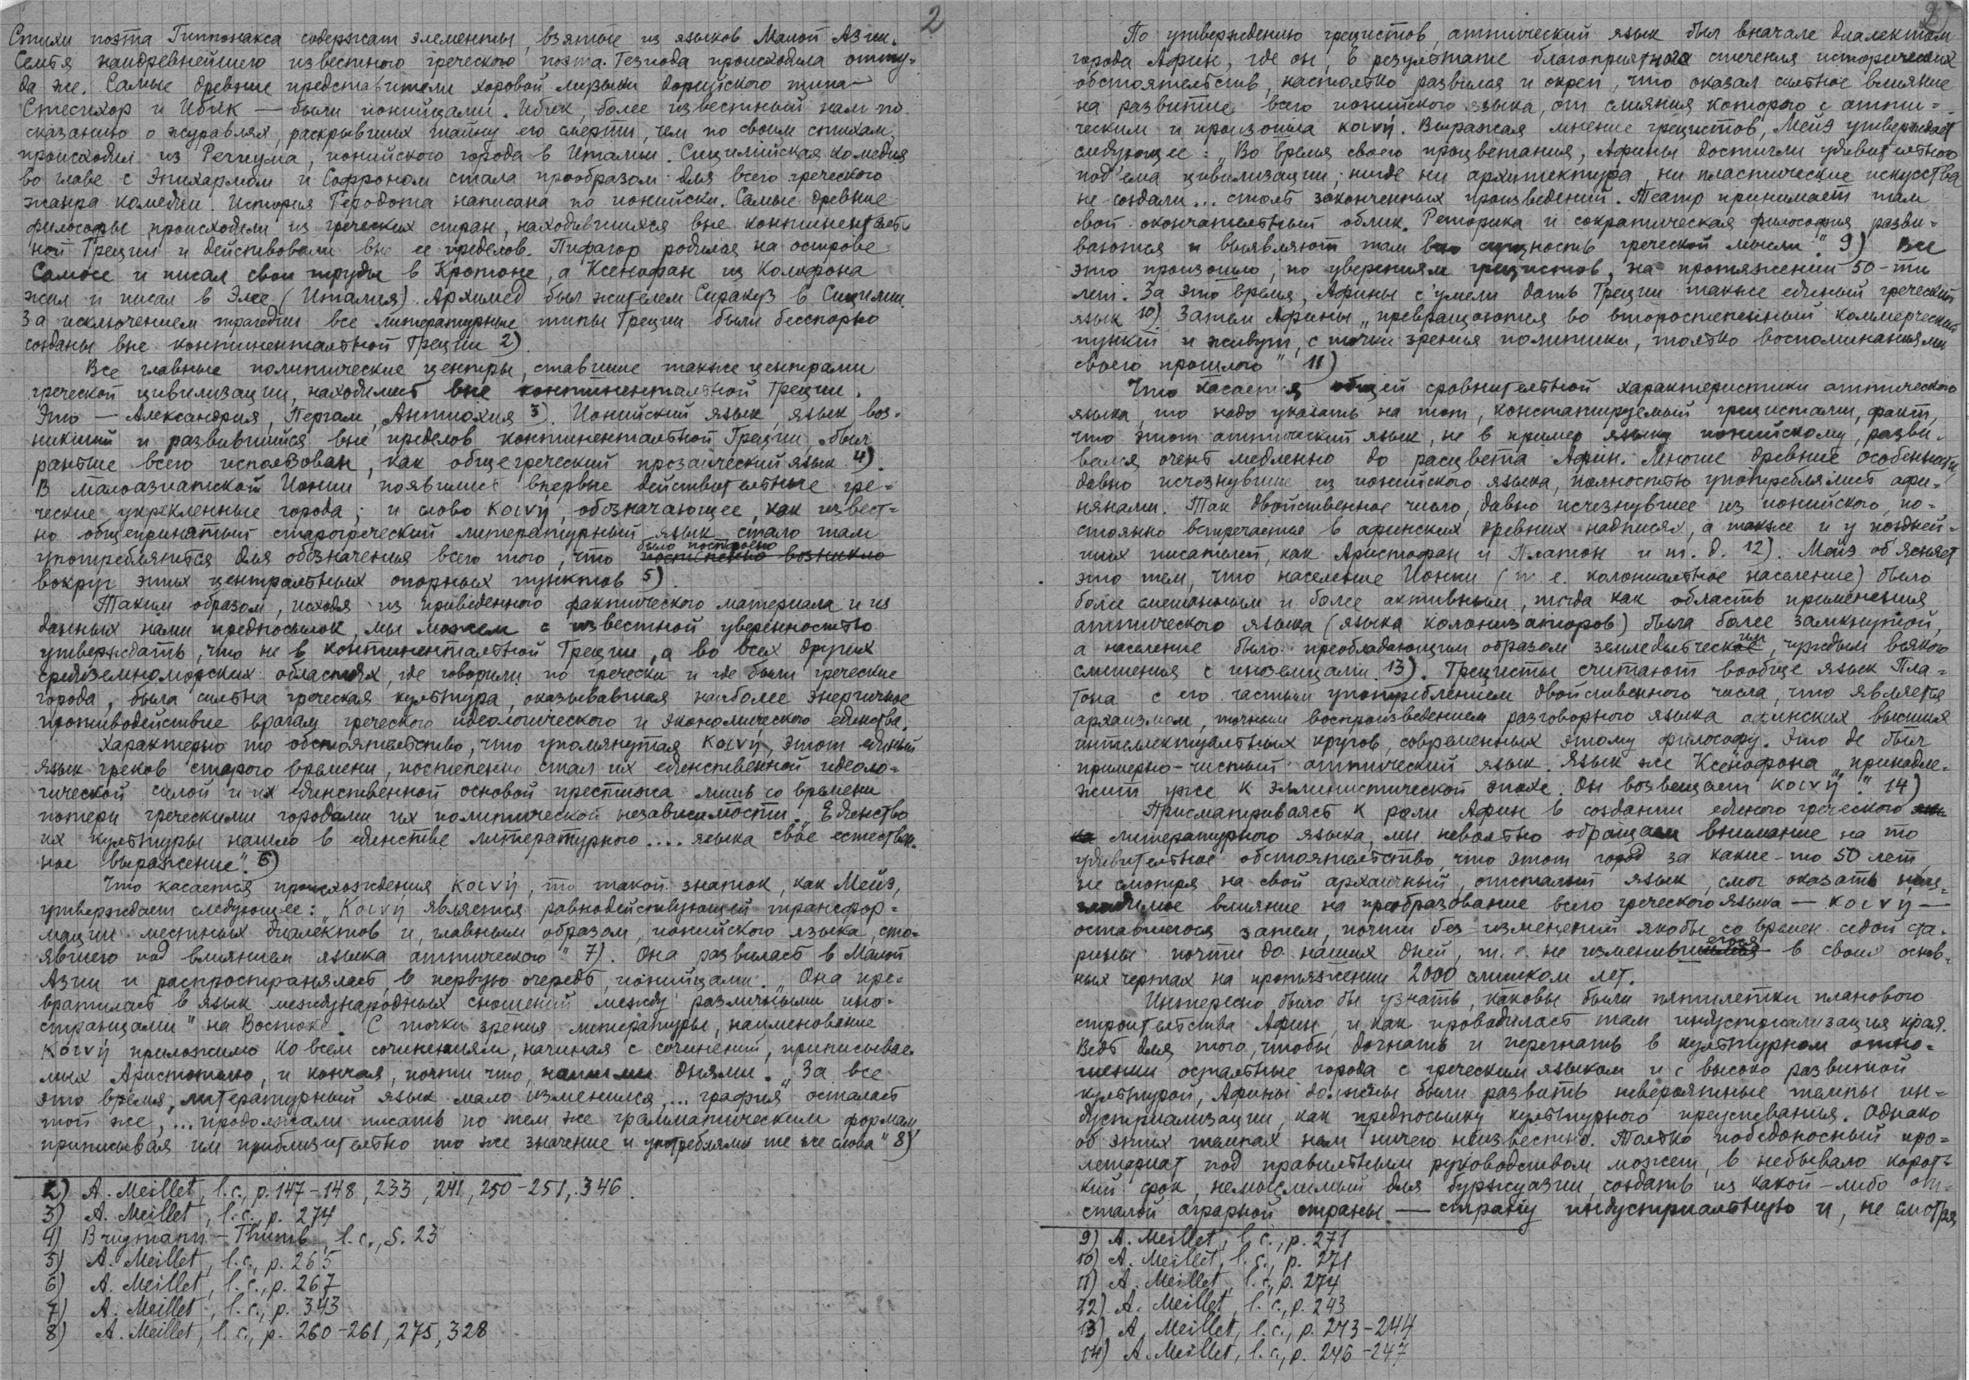 2
Стихи поэта Гиппонакса содержат элементы, взятые из языков Малой Азии.
Семья наидревнейшего известного греческого поэта Гезиода происходила отту-
да же. Самые древние представители хоровой музыки дорийского типа —
Стесихор и Ибик — были ионийцами. Ибик, более известный нам по
сказанию о журавлях, раскрывших тайну его смерти, чем по своим стихам,
происходил из Региума, ионийского города в Италии. Сицилийская комедия
во главе с Эпихармом и Софроном стала прообразом для всего греческого
жанра комедии. История Геродота написана по ионийски. Самые древние
философы происходили из греческих стран, находившихся вне континенталь-
ной Греции и действовали вне ее пределов. Пифагор родился на острове
Самосе и писал свои труды в Кротоне, а Ксенофан из Колофона
жил и писал в Элее (Италия). Архимед был жителем Сиракуз в Сицилии.
За исключением трагедии все литературные типы Греции были бесспорно
созданы вне континентальной Греции 2).
Все главные политические центры, ставшие также центрами
греческой цивилизации, находились вне континентальной Греции.
Это — Александрия, Пергам, Антиохия 3). Ионийский язык, язык воз-
никший и развившийся вне пределов континентальной Греции, был
раньше всего использован, как общегреческий прозаический язык 4).
В малоазиатской Ионии появились впервые действительные гре-
ческие укрепленные города; и слово κοινή, обозначающее, как извест-
но общепринятый старогреческий литературный язык стало там
употребляться для обозначения всего того, что было построено постепенно возникло
вокруг этих центральных опорных пунктов 5).
Таким образом, исходя из приведенного фактического материала и из
данных нами предпосылок, мы можем с известной уверенностью
утверждать, что не в континентальной Греции, а во всех других
средиземноморских областях, где говорили по гречески и где были греческие
города, была сильна греческая культура, оказывавшая наиболее энергичное
противодействие врагам греческого идеологического и экономического единства.
Характерно то обстоятельство, что упомянутая κοινή, этот единый
язык греков старого времени, постепенно стал их единственной идеоло-
гической силой и их единственной основой престижа лишь со времени
потери греческими городами их политической независимости. „Единство
их культуры нашло в единстве литературного .... языка свое естествен-
ное выражение". 6)
Что касается происхождения κοινή, то такой знаток, как Мейэ,
утверждает следующее: „Κοινή является равнодействующей трансфор-
мации местных диалектов и, главным образом, ионийского языка, сто-
явшего под влиянием языка аттического" 7). Она развилась в Малой
Азии и распространялась, в первую очередь, ионийцами. „Она пре-
вратилась в язык международных сношений между различными ино-
странцами" на Востоке. С точки зрения литературы, наименование
κοινή приложимо ко всем сочинениям, начиная с сочинений, приписывае-
мых Аристотелю, и кончая, почти что, нашими днями. „За все
это время, литературный язык мало изменился, ... графия осталась
той же, ... продолжали писать по тем же грамматическим формам
приписывая им приблизительно то же значение и употребляли те же слова" 8)
2) A. Meillet, l. c., p. 147-148, 233, 241, 250-251, 346.
3) A. Meillet, l. c., p. 274
4) Brugmann-Thumb, l. c., S. 23
5) A. Meillet, l. c., p. 265
6) A. Meillet, l. c., p. 267
7) A. Meillet, l. c., p. 343
8) A. Meillet, l. c., p. 260-261, 275, 328
По утверждению грецистов, аттический язык был вначале диалектом
города Афин, где он, в результате благоприятного стечения исторических
обстоятельств, настолько развился и окреп, что оказал сильное влияние
на развитие всего ионийского языка, от слияния которого с атти-
ческим и произошла κοινή. Выражая мнение грецистов, Мейэ утверждает
следующее: „Во время своего процветания, Афины достигли удивительного
подъема цивилизации; нигде ни архитектура, ни пластические искусства
не создали... столь законченных произведений. Театр принимает там
свой окончательный облик. Реторика и сократическая философия разви-
ваются и выявляют там сущность греческой мысли" 9) Все
это произошло, по уверениям грецистов, на протяжении 50-ти
лет. За это время, Афины с'умели дать Греции также единый греческий
язык 10) Затем Афины „превращаются во второстепенный коммерческий
пункт и живут, с точки зрения политики, только воспоминаниями
своего прошлого" 11)
Что касается общей сравнительной характеристики аттического
языка, то надо указать на тот, констатируемый грецистами, факт,
что этот аттический язык, не в пример языку ионийскому, разви-
вался очень медленно до расцвета Афин. Многие древние особенности,
давно исчезнувшие из ионийского языка, полностью употреблялись афи-
нянами. Так двойственное число, давно исчезнувшее из ионийского, по-
стоянно встречается в афинских древних надписях, а также и у поздней-
ших писателей, как Аристофан и Платон и т. д. 12). Мейэ об'ясняет
это тем, что население Ионии (т. е. колониальное население) было
более смешанным и более активным, тогда как область применения
аттического языка (языка колонизаторов) была более замкнутой,
а население было преобладающим образом земледельческим, чуждым всякого
смешения с иноземцами 13). Грецисты считают вообще язык Пла-
тона с его частым употреблением двойственного числа, что является
архаизмом, точным воспроизведением разговорного языка афинских высших
интеллектуальных кругов, современных этому философу. Это де был
примерно-чистый аттический язык. Язык же Ксенофона „принадле-
жит уже к эллинистической эпохе. Он возвещает κοινή". 14)
Присматриваясь к роли Афин в создании единого греческого
литературного языка, мы невольно обращаем внимание на то
удивительное обстоятельство, что этот город за какие-то 50 лет,
не смотря на свой архаичный, отсталый язык, смог оказать неиз-
гладимое влияние на преобразование всего греческого языка — κοινή —
оставшегося затем, почти без изменений якобы, со времен седой ста-
рины почти до наших дней, т. е. не изменившегося в своих основ-
ных чертах на протяжении 2000 слишком лет.
Интересно было бы узнать, каковы были пятилетки планового
строительства Афин, и как проводилась там индустриализация края.
Ведь для того, чтобы догнать и перегнать в культурном отно-
шении остальные города с греческим языком и с высоко развитой
культурой, Афины должны были развить невероятные темпы ин-
дустриализации, как предпосылку культурного преуспевания. Однако
об этих темпах нам ничего неизвестно. Только победоносный про-
летариат под правильным руководством может, в небывало корот-
кий срок, немыслимый для буржуазии, создать из какой-либо от-
сталой аграрной страны — страну индустриальную и, не смотря
9) A. Meillet, l. c., p. 271
10) A. Meillet, l. c., p. 271
11) A. Meillet, l. c., p. 274
12) A. Meillet, l. c., p. 243
13) A. Meillet, l. c., p. 243-244
14) A. Meillet, l. c., p. 246-247